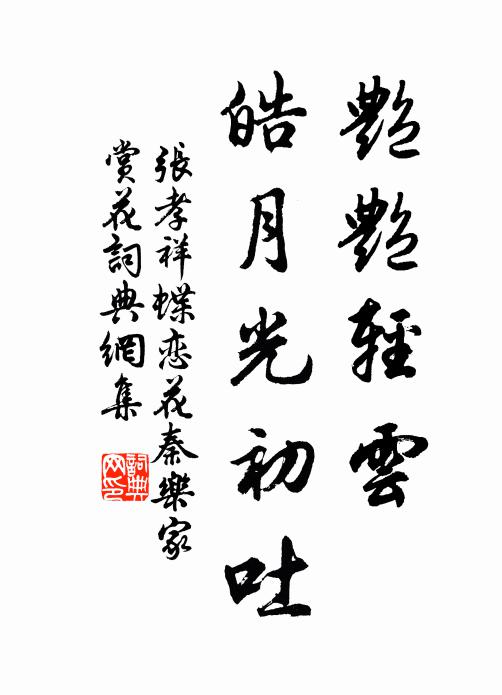 艷艷輕雲
皓月光初吐
張孝祥蝶恋花秦樂家
賞花詞典網集
詞典
网印